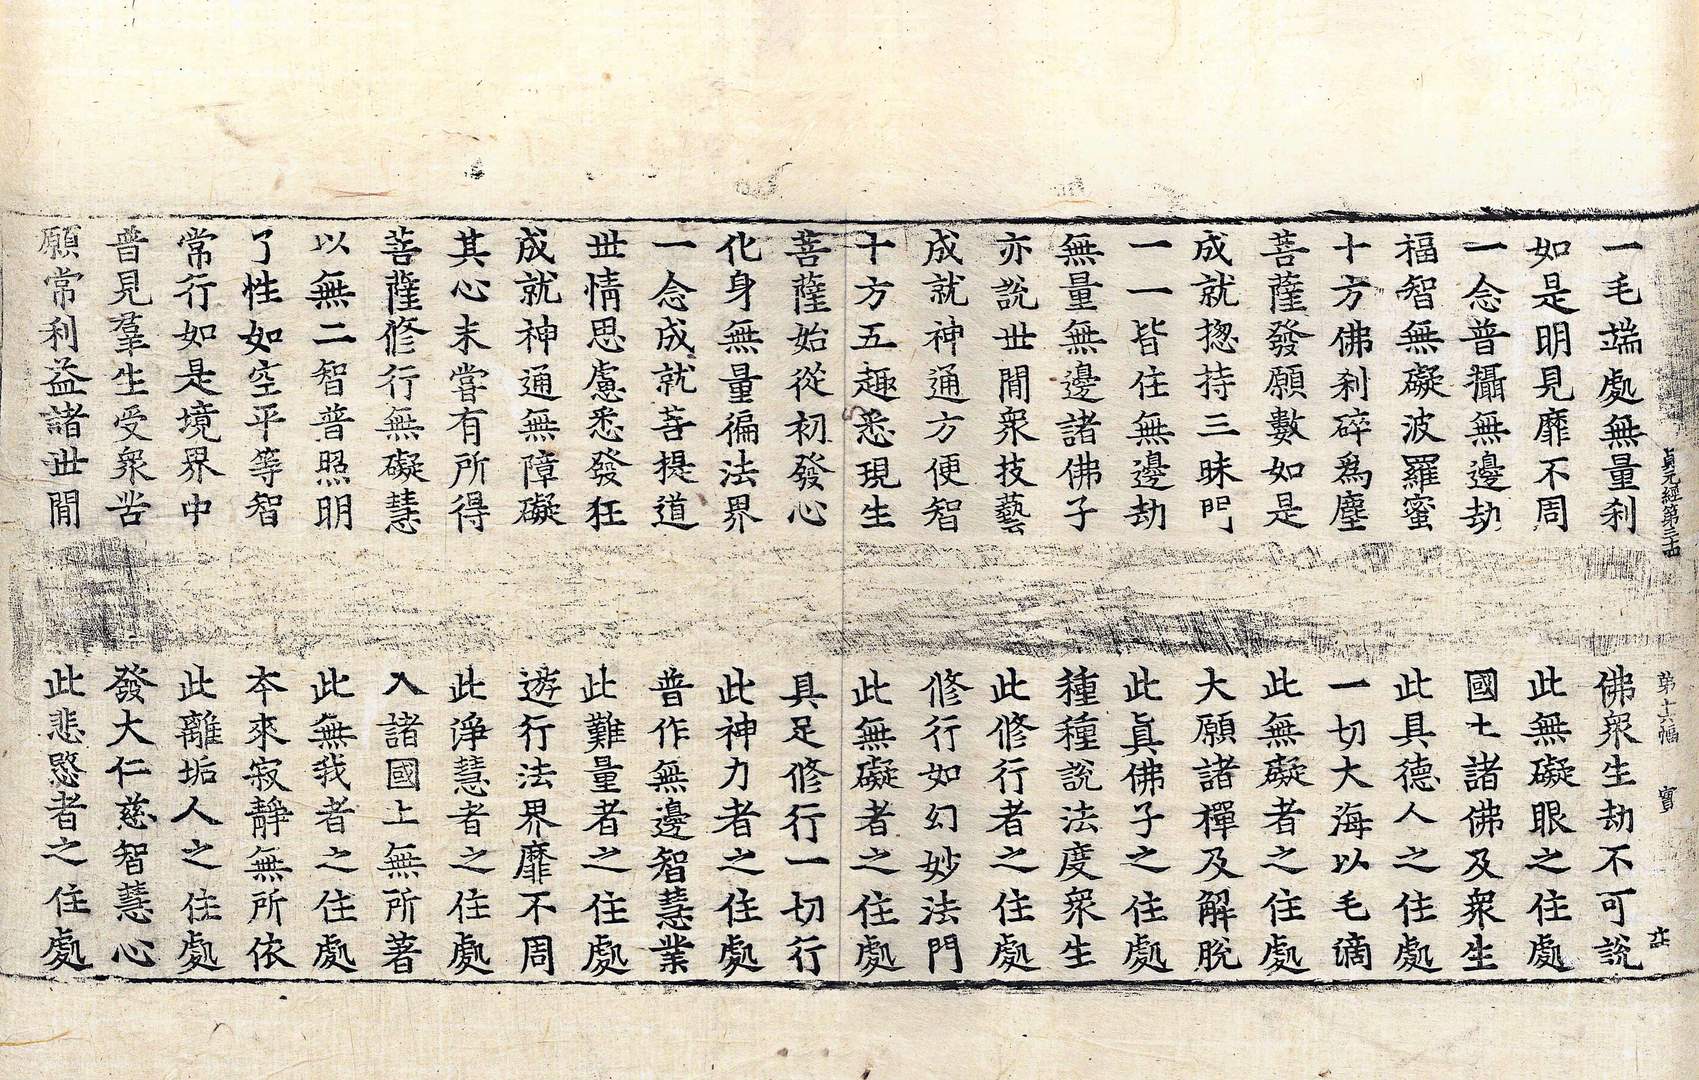 貞元經第三十 第十六幅 寳
一毛端處無量刹 佛衆生劫不可說
如是明見靡不周 此無礙眼之住處
一念普攝無邊劫 國土諸佛及衆生
福智無礙波羅蜜 此具德人之住處
十方佛刹碎爲塵 一切大海以毛滴
菩薩發願數如是 此無礙者之住處
成就揔持三昧門 大願諸禪及解脫
一一皆住無邊劫 此眞佛子之住處
無量無邊諸佛子 種種說法度衆生
亦說世間衆技藝 此修行者之住處
成就神通方便智 修行如幻妙法門
十方五趣悉現生 此無礙者之住處
菩薩始從初發心 具足修行一切行
化身無量徧法界 此神力者之住處
一念成就菩提道 普作無邊智慧業
世情思慮悉發狂 此難量者之住處
成就神通無障礙 遊行法界靡不周
其心未嘗有所得 此淨慧者之住處
菩薩修行無礙慧 入諸國土無所著
以無二智普照明 此無我者之住處
了性如空平等智 本來寂靜無所依
常行如是境界中 此離垢人之住處
普見羣生受衆苦 發大仁慈智慧心
願常利益諸世間 此悲愍者之住處